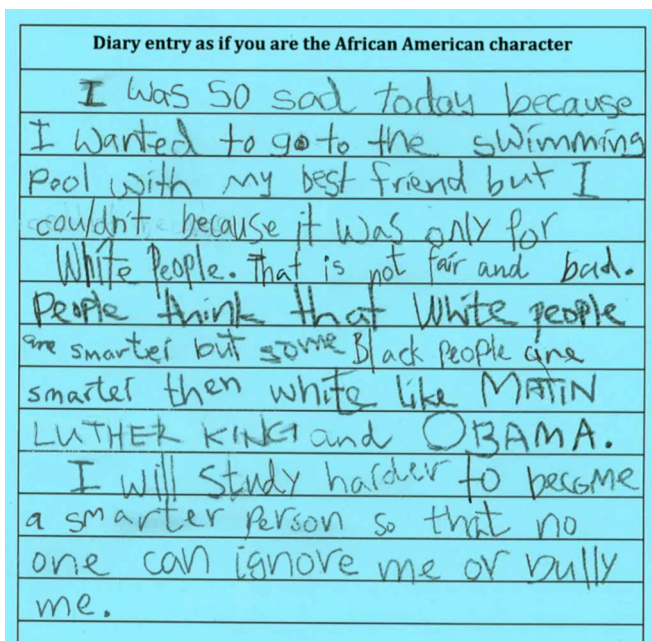 Diary entry as if you are the African American character
I was so sad today because
I wanted to go to the swimming
pool with my best friend but I
couldn't because it was only for
White People. That is not fair and bad.
People think that White people
are smarter but some Black People are
smarter then white like MATIN
LUTHER KING and OBAMA.
I will study harder to become
a smarter person so that no
one can ignore me or bully
me.